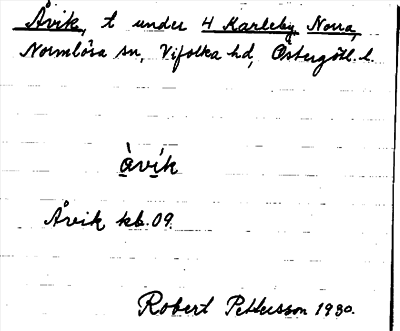 Åvik, t under 4 Karleby, Norra,
Normlösa sn, Vifolka hd, Östergötl. l.
àvík
Åvik kb. 09.
Robert Pettersson 1930.